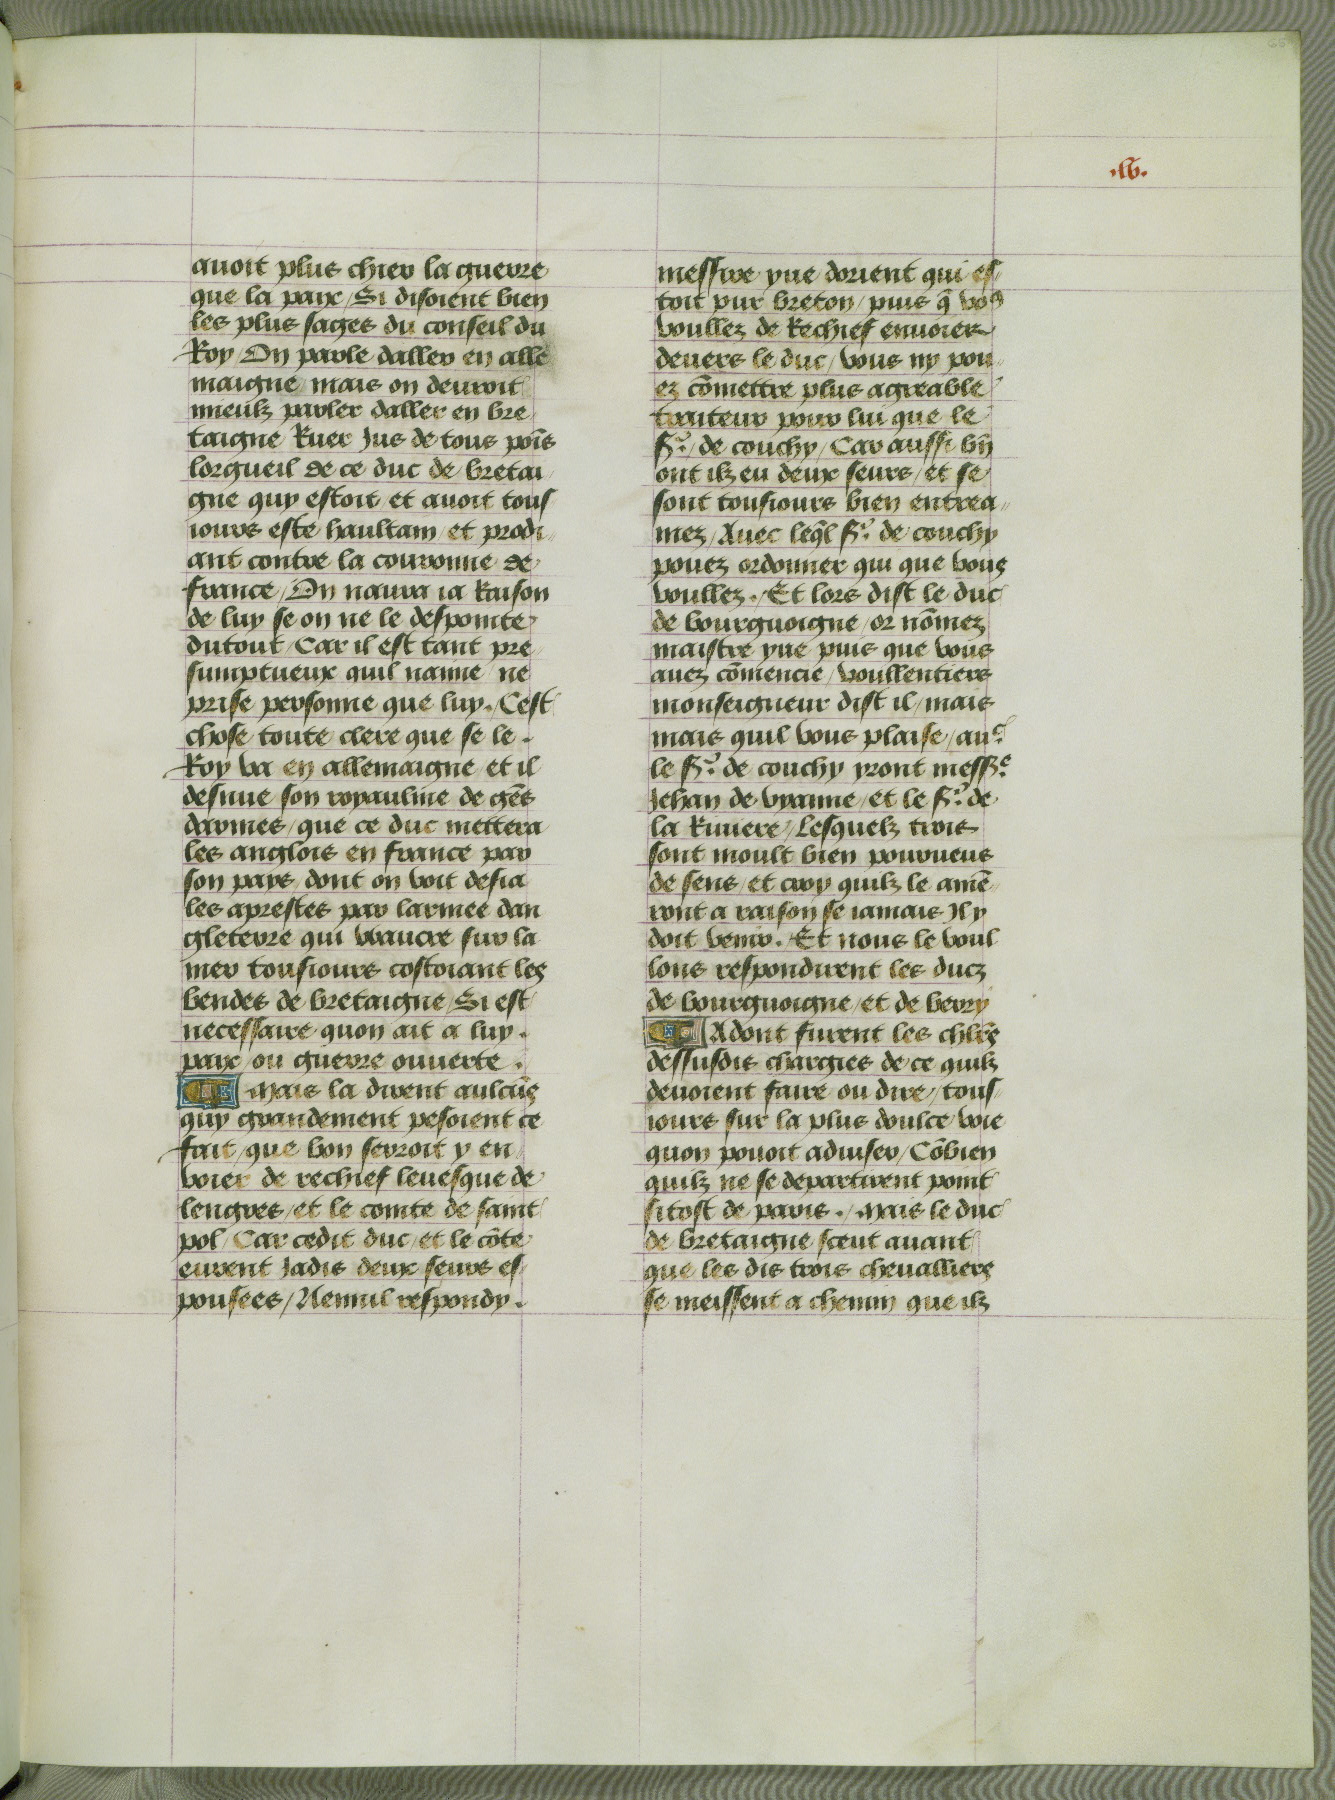 .lv.
auoit plus chier la guerre
que la paix / Si disoient bien
les plus sages du conseil du
Roy / On parle daller en alle
maigne / mais on deuroit
mieulz parler daller en bre
taigne Ruer Jus de tous poīs
lorgueil de ce duc de bretai
gne quy estoit et auoit tous
iours este haultain et prodi
ant contre la couronne de
france / On naura ia Raison
de luy se on ne le despointe
dutout / Car il est tant pre
sumptueux quil naime / ne
prise personne que luy. / Cest
chose toute clere que se le .
Roy va en allemaigne et il
desnue son royaulme de gēs
darmes / que ce duc mettera
les anglois en france par
son pays / dont on voit desia
les aprestes par larmee dan
gleterre qui vvaucre sur la
mer tousiours costoiant les
bendes de bretaigne / Si est
necessaire quon ait a luy .
paix / ou guerre ouuerte .
Mais la dirent aulcūs
quy grandement pesoient ce
fait / que bon serroit y en
voier de rechief leuesque de
lengres / et le comte de saint
pol / Car cedit duc / et le cōte
eurent Jadis deux seurs es
pousees / Nennil respondy .
messire yue dorient qui es
toit pur breton / puis q̄ vo9
voullez de Rechief enuoier
deuers le duc / vous ny pou
ez cōmettre plus agreable
traiteur pour lui que le
Sr. / de couchy / Car aussi bn̄
ont ilz eu deux seurs / et se
sont tousiours bien entrea
mez / Auec leq̄l Sr. de couchy
pouez ordonner qui que vous
voullez . / Et lors dist le duc
de bourguoigne / or nōmez
maistre yue puis que vous
auez cōmencie / voullentiers
monseigneur dist il / mais
mais quil vous plaise / auec
le Sr. de couchy yront messre
Jehan de vyanne / et le Sr. de
la Riuiere / Lesquelz trois
sont moult bien pourueus
de sens / et croy quilz le amē
ront a raison se iamais Il y
doit venir . / Et nous le voul
lons respondirent les ducz
de bourguoigne / et de berry
Adont furent les chl̄rs
dessusdis chargies de ce quilz
deuoient faire ou dire / tous
iours sur la plus doulce voie
quon pouoit aduiser / Cōbien
quilz ne se departirent point
sitost de paris . / Mais le duc
de bretaigne sceut auant
que les dis trois cheualliers
se meissent a chemin que ilz